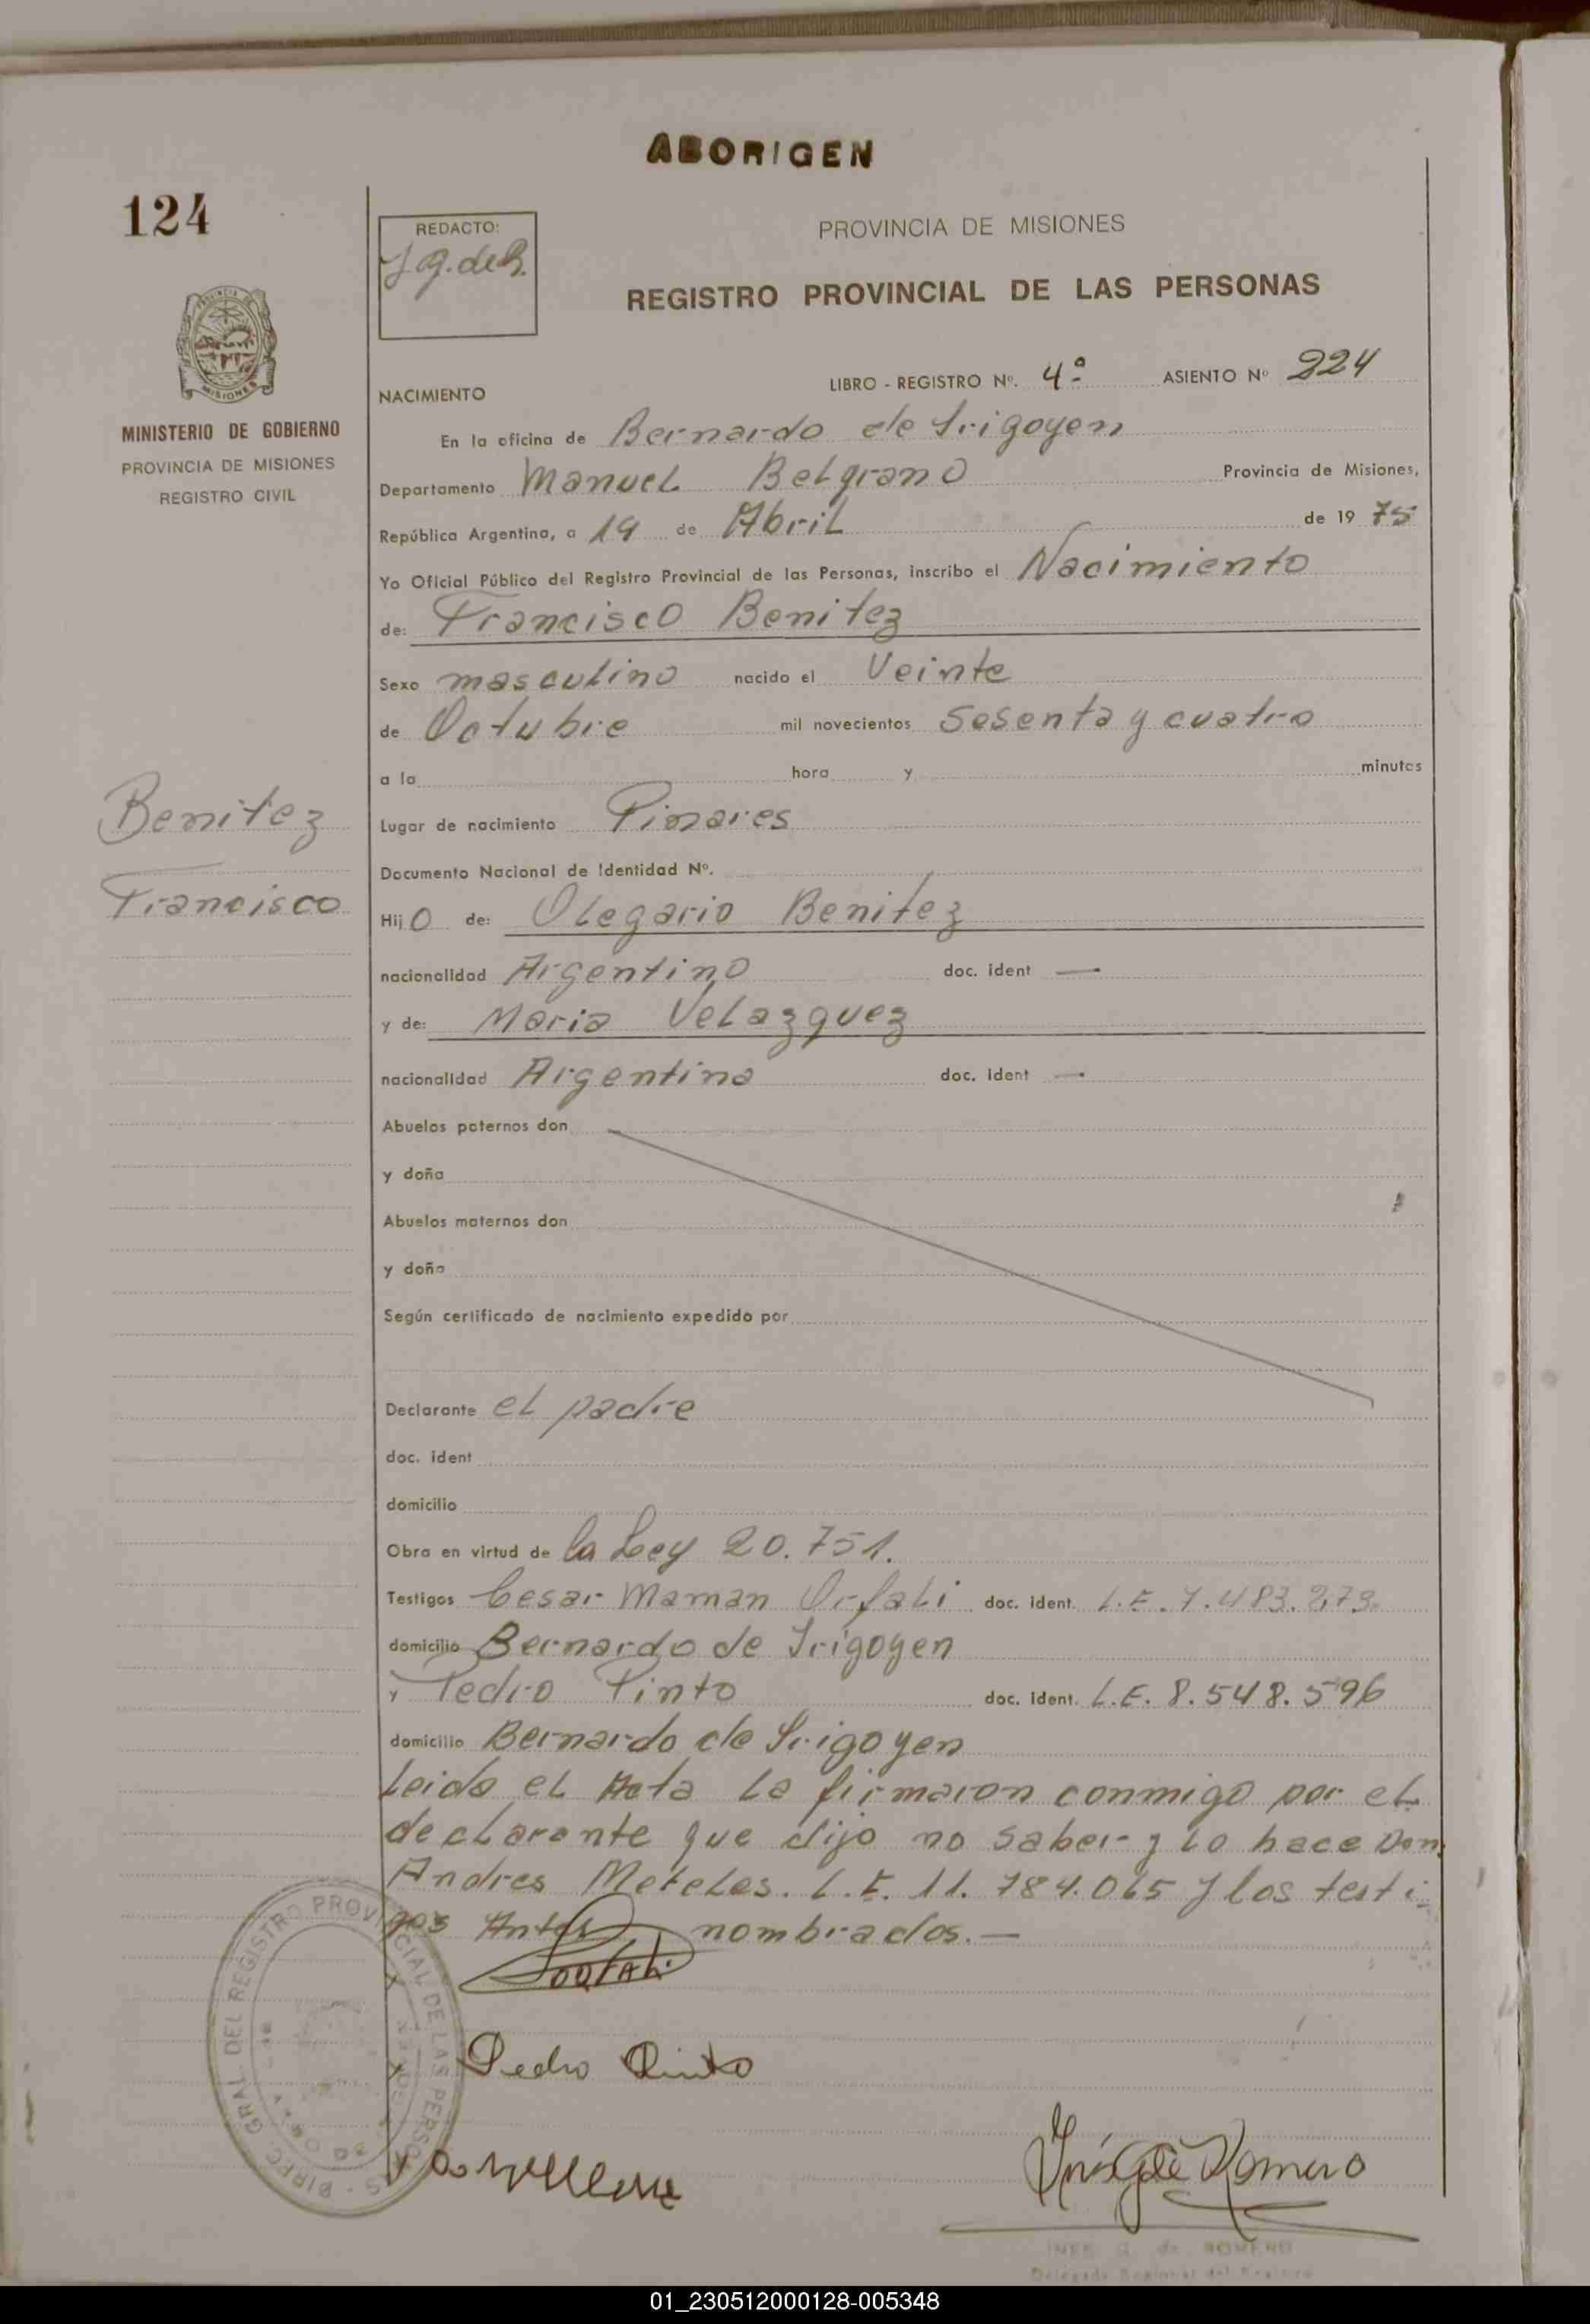 ABORIGEN
124
REDACTO:
PROVINCIA DE MISIONES
REGISTRO PROVINCIAL DE LAS PERSONAS
MISIONES
MINISTERIO DE GOBIERNO
PROVINCIA DE MISIONES
REGISTRO CIVIL
NACIMIENTO
LIBRO - REGISTRO Nº. 4º ASIENTO Nº 224
En la oficina de Bernardo de Irigoyen
Departamento Manuel Belgrano Provincia de Misiones,
República Argentina, a 19 de Abril de 1975
Yo Oficial Público del Registro Provincial de las Personas, inscribo el Nacimiento
de: Francisco Benitez
Sexo masculino nacido el Veinte
de Octubre mil novecientos sesenta y cuatro
a la hora y minutos
Benitez
Lugar de nacimiento Pinares
Documento Nacional de Identidad Nº.
Francisco
Hijo de: Olegario Benitez
nacionalidad Argentino doc. ident —
y de: Maria Velazquez
nacionalidad Argentina doc. ident —
Abuelos paternos don
y doña
Abuelos maternos don
y doña
Según certificado de nacimiento expedido por
Declarante el padre
doc. ident
domicilio
Obra en virtud de la Ley 20.751.
Testigos Cesar Maman Orfali doc. ident. L.E. 7.483.273.
domicilio Bernardo de Irigoyen
y Pedro Pinto doc. ident. L.E. 8.548.596
domicilio Bernardo de Irigoyen
Leida el Acta la firmaron conmigo por el
declarante que dijo no saber y lo hace Don
Andres Meteles. L.E. 11.784.065 y los testi
gos Antes nombrados.—
Pedro Pinto
DIREC. GRAL. DEL REGISTRO PROVINCIAL DE LAS PERSONAS
Inés G. de Romero
INES G. de ROMERO
Delegada Regional del Registro
01_230512000128-005348